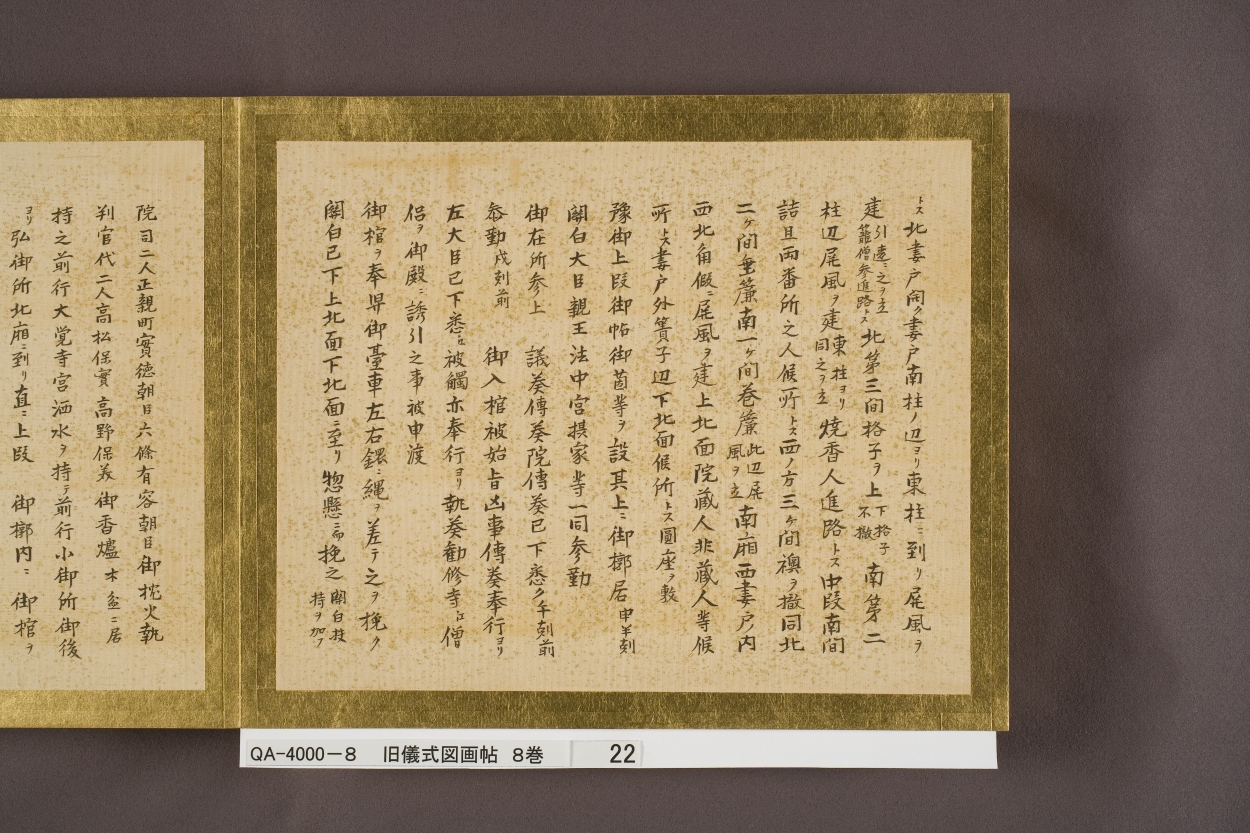 トス北妻戸開ク妻戸南柱ノ辺ヨリ東柱ニ到リ屏風ヲ
建引違ニ之ヲ立籠僧参進路トス北第三間格子ヲ上下格子不撤南第二
柱辺屏風ヲ建東柱ヨリ同之ヲ立焼香人進路トス中段南間
詰且両番所之人候所トス西ノ方三ケ間襖ヲ撤同北
二ケ間垂簾南一ケ間巻簾此辺屏風ヲ立南廂西妻戸内
西北角假ニ屏風ヲ建上北面院蔵人非蔵人等候
所トス妻戸外簀子辺下北面候所トス圓座ヲ敷
豫御上段御帖御茵等ヲ設其上ニ御槨居申半刻
関白大臣親王法中宮摂家等一同参勤
御在所参上 議奏傳奏院傳奏已下悉ク午刻前
参勤戌刻前 御入棺被始旨凶事傳奏奉行ヨリ
左大臣已下悉江被觸亦奉行ヨリ執奏勧修寺江僧
侶ヲ御殿ニ誘引之事被申渡
御棺ヲ奉舁御臺車左右鐶ニ縄ヲ差テ之ヲ挽ク
関白已下上北面下北面ニ至リ惣懸ニ而挽之関白扶持ヲ加フ
院司二人正親町實徳朝臣六條有容朝臣御枕火執
判官代二人高松保實 高野保美御香爐木盆ニ居
持之前行大覚寺宮洒水ヲ持テ前行小御所御後
ヨリ弘御所北廂ニ到リ直ニ上段 御槨内ニ御棺ヲ
QA-4000-8 旧儀式図画帖 8巻 22